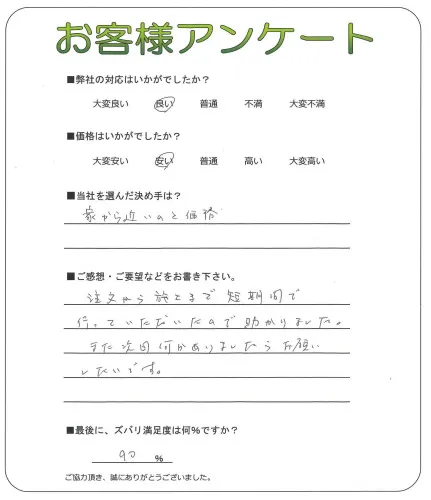 お客様アンケート
■弊社の対応はいかがでしたか？
大変良い 良い 普通 不満 大変不満
■価格はいかがでしたか？
大変安い 安い 普通 高い 大変高い
■当社を選んだ決め手は？
家から近いのと価格
■ご感想・ご要望などをお書き下さい。
注文から施工まで短期間で
行っていただいたので助かりました。
また次回何かありましたらお願い
したいです。
■最後に、ズバリ満足度は何％ですか？
90 ％
ご協力頂き、誠にありがとうございました。